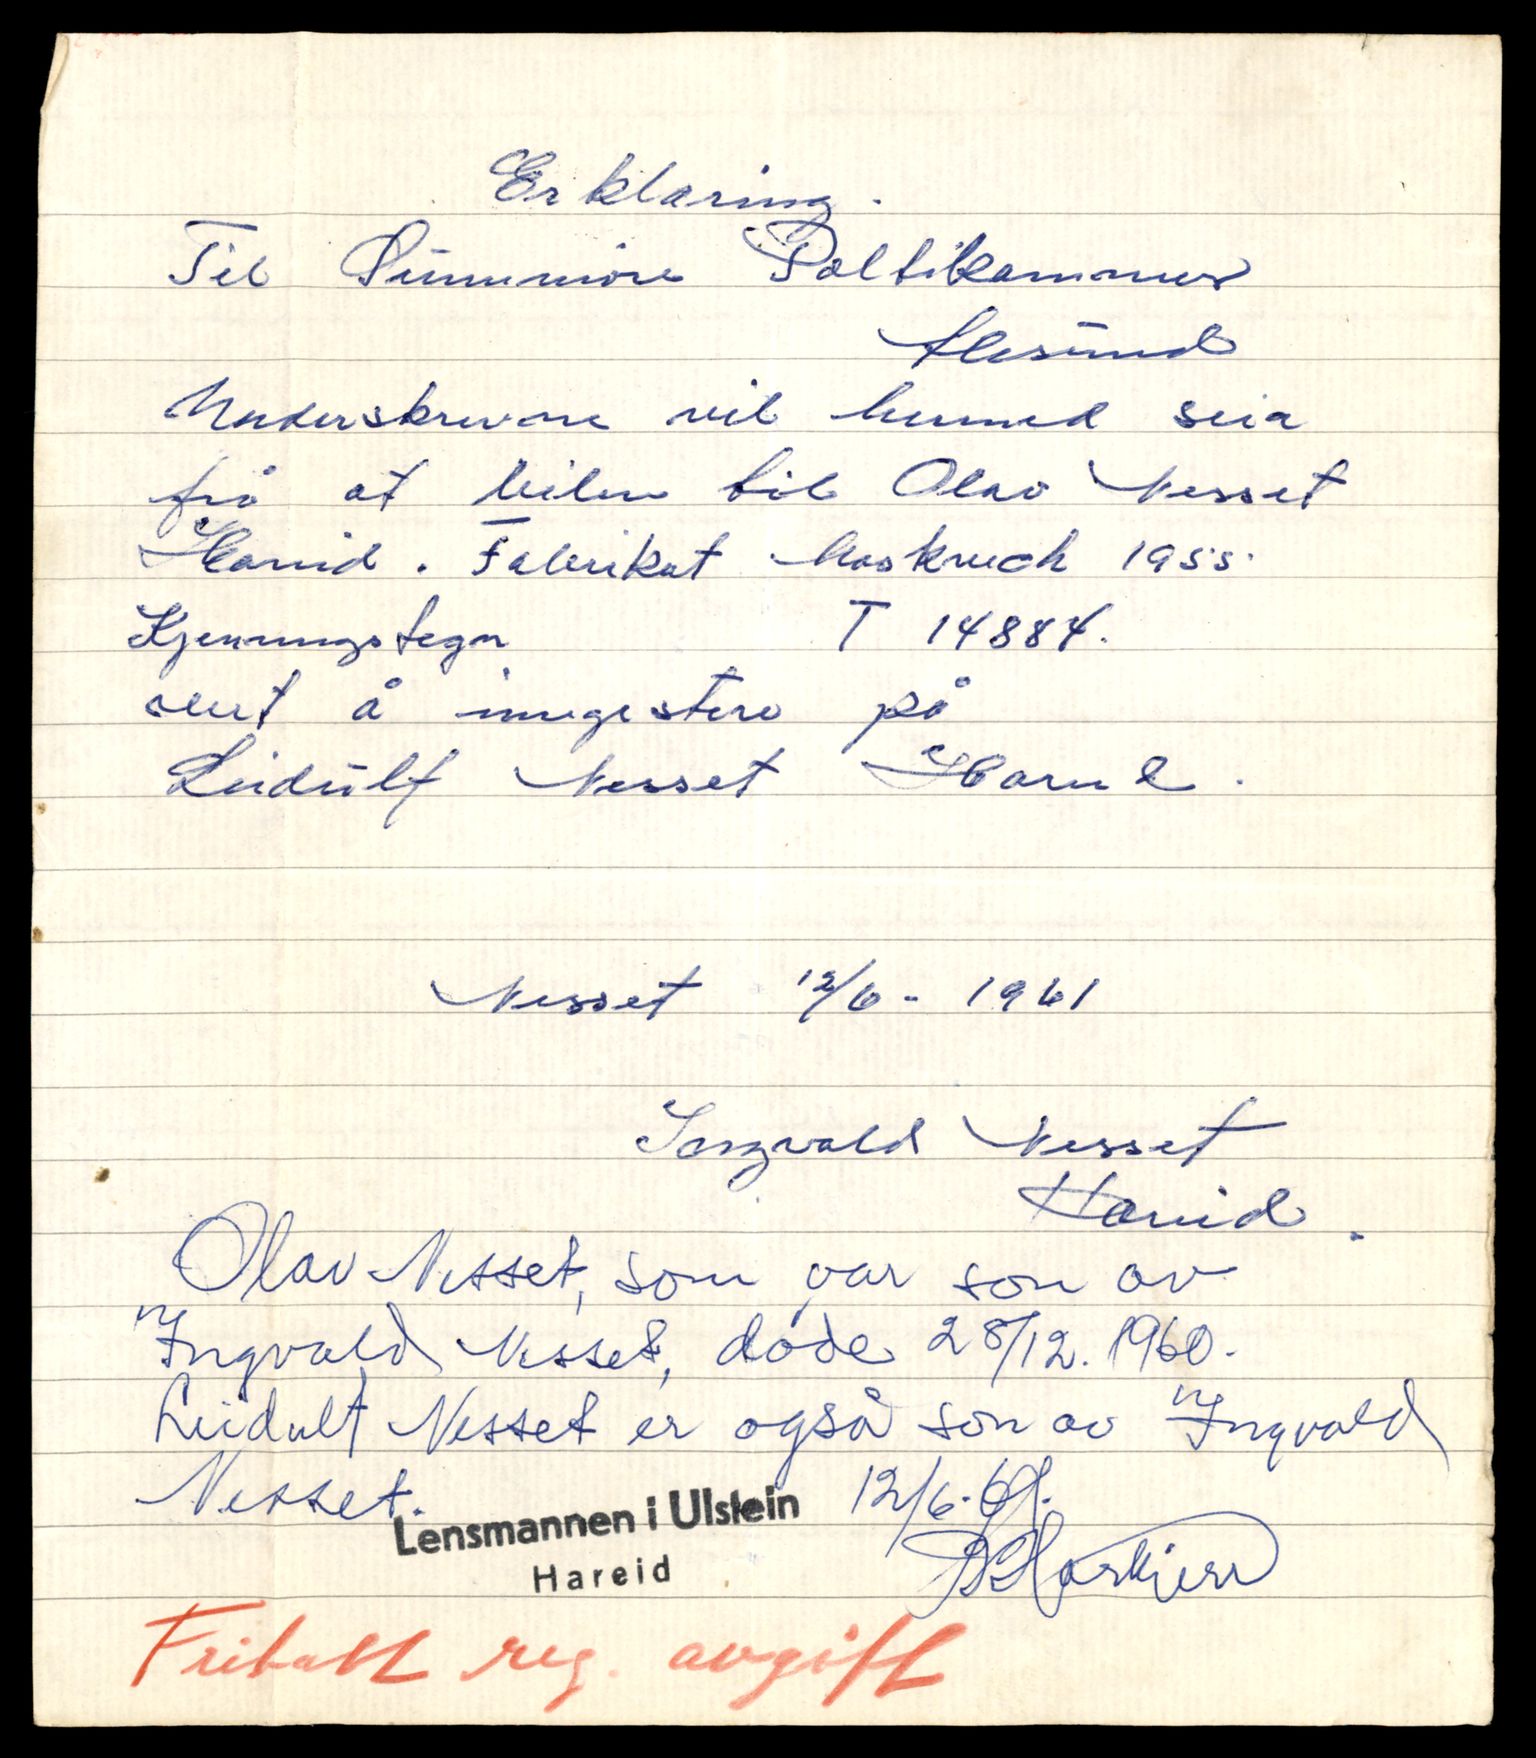 Erklaring.
Til Sunnmøre Poltikammer
Alesund
Underskrevne vil hermed seia
frå at bilen til Olav Nesset
Hareid. Fabrikat Moskvich 1955.
Kjenningstegn T 14884.
vert å inregistere på
Leidulf Nesset Hareid.
Nesset 12/6 - 1961
Ingvald Nesset
Hareid.
Olav Nesset, som var son av
Ingvald Nesset, døde 28/12. 1960.
Leidulf Nesset er også son av Ingvald
Nesset. 12/6. 61.
Lensmannen i Ulstein
Hareid
Fritatt reg. avgift